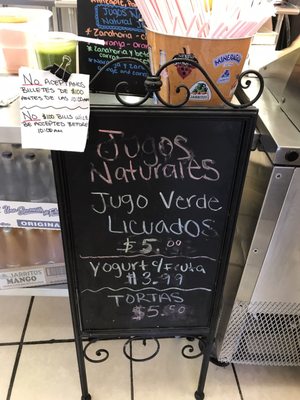 Jugos
Natural
y Zandhoria
y betabel
NO ACEPTAMOS
BILLETES DE $100
ANTES DE LAS 10:00AM
NO $100 BILLS WILL
BE ACCEPTED BEFORE
10:00AM
ORIGINAL
JARRITOS
MANGO
Jugos
Naturales
Jugo Verde
Licuados
$5.00
Yogurt c/Fruta
$3.99
TORTAS
$5.50